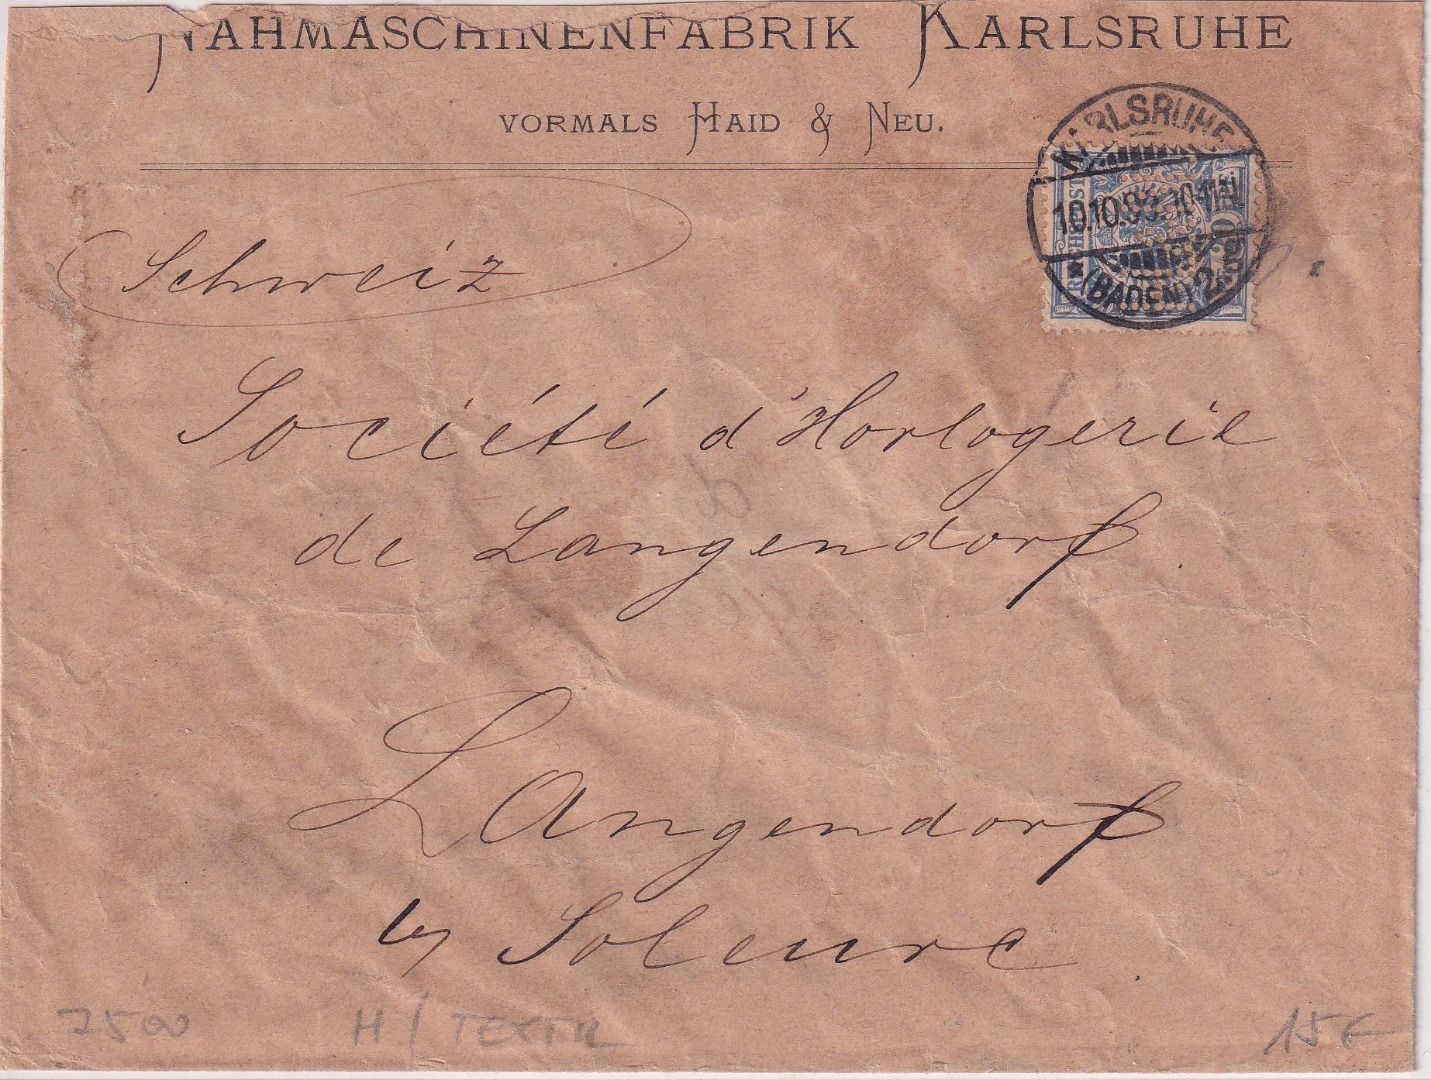 NÄHMASCHINENFABRIK KARLSRUHE
VORMALS HAID & NEU.
KARLSRUHE
10.10.93. 10-11N.
(BADEN) 2.
REICHSPOST
Schweiz
Société d'Horlogerie
de Langendorf
Langendorf
by Soleure
7500
H / TEXTIL
15€